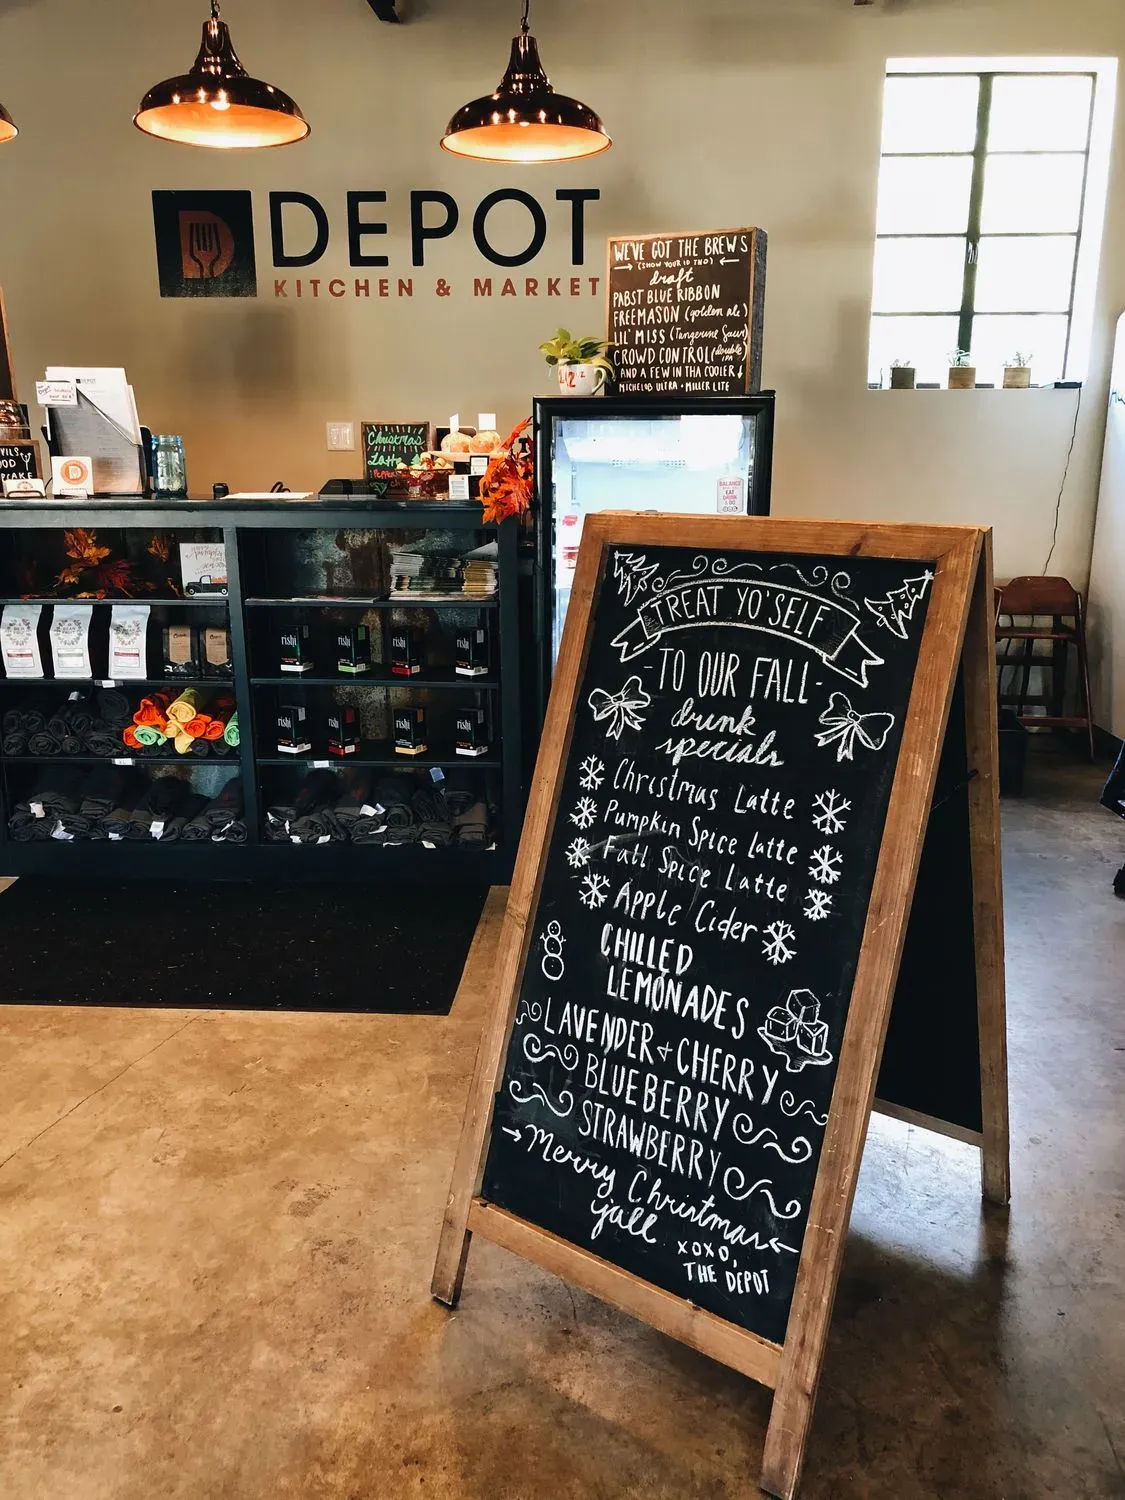 DEPOT
KITCHEN & MARKET
WE'VE GOT THE BREWS
(SHOW YOUR ID THO)
draft
PABST BLUE RIBBON
FREEMASON (golden ale)
LIL' MISS (Tangerine Sour)
CROWD CONTROL (double IPA)
AND A FEW IN THA COOLER
MICHELOB ULTRA • MILLER LITE
Christmas
Latte
CAKE
rishi
rishi
rishi
rishi
rishi
rishi
rishi
rishi
BALANCE
EAT
DRINK
TREAT YO'SELF
-TO OUR FALL-
drink
specials
Christmas Latte
Pumpkin Spice Latte
Fall Spice Latte
Apple Cider
CHILLED
LEMONADES
LAVENDER + CHERRY
BLUEBERRY
STRAWBERRY
Merry Christmas
y'all
XOXO,
THE DEPOT